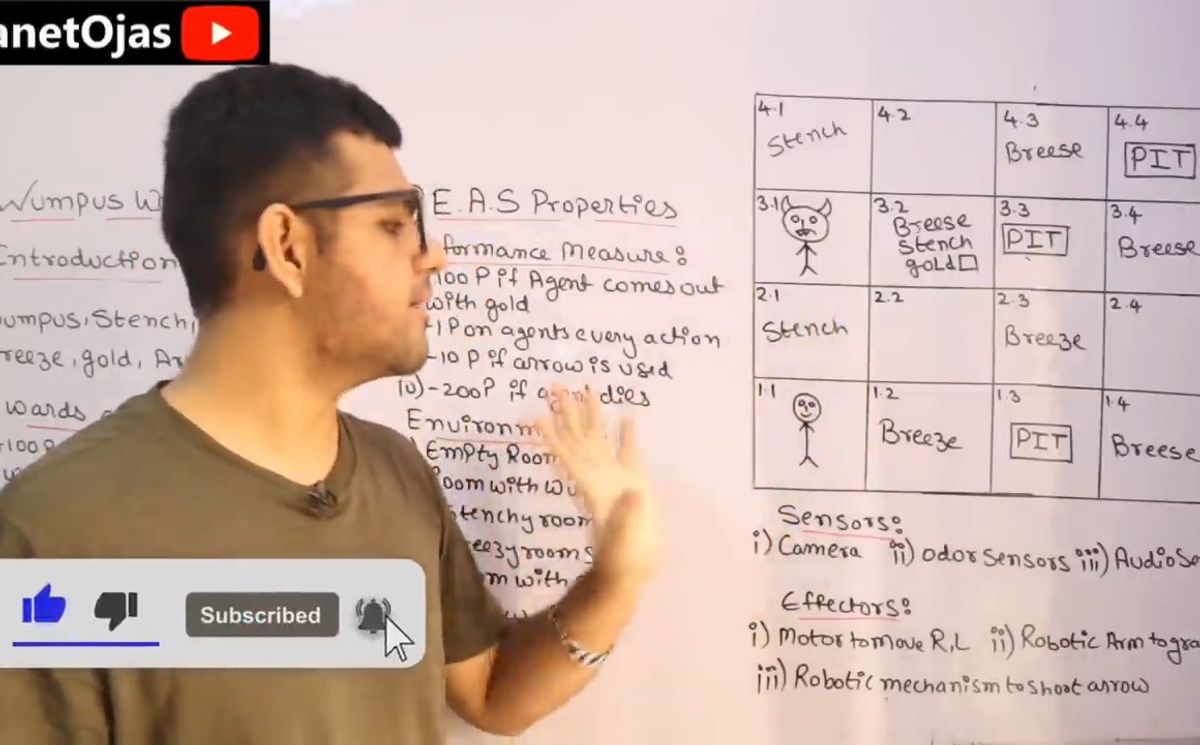 anetOjas
Wumpus W
Introduction
umpus, Stench,
reeze, gold, Ar
wards
100 P
E.A.S Properties
formance Measure:
100 P if Agent comes out
with gold
-1 P on agents every action
-10 P if arrow is used
iv) -200 P if agent dies
Environm
Empty Room
oom with wu
tenchy room
eezy room s
m with
4.1 Stench
4.2
4.3 Breese
4.4 PIT
3.1
3.2 Breese
Stench
gold
3.3 PIT
3.4 Breese
2.1 Stench
2.2
2.3 Breeze
2.4
1.1
1.2 Breeze
1.3 PIT
1.4 Breese
Sensors:
i) Camera ii) odor sensors iii) Audio Se
Effectors:
i) Motor to move R,L ii) Robotic Arm to gra
iii) Robotic mechanism to shoot arrow
Subscribed